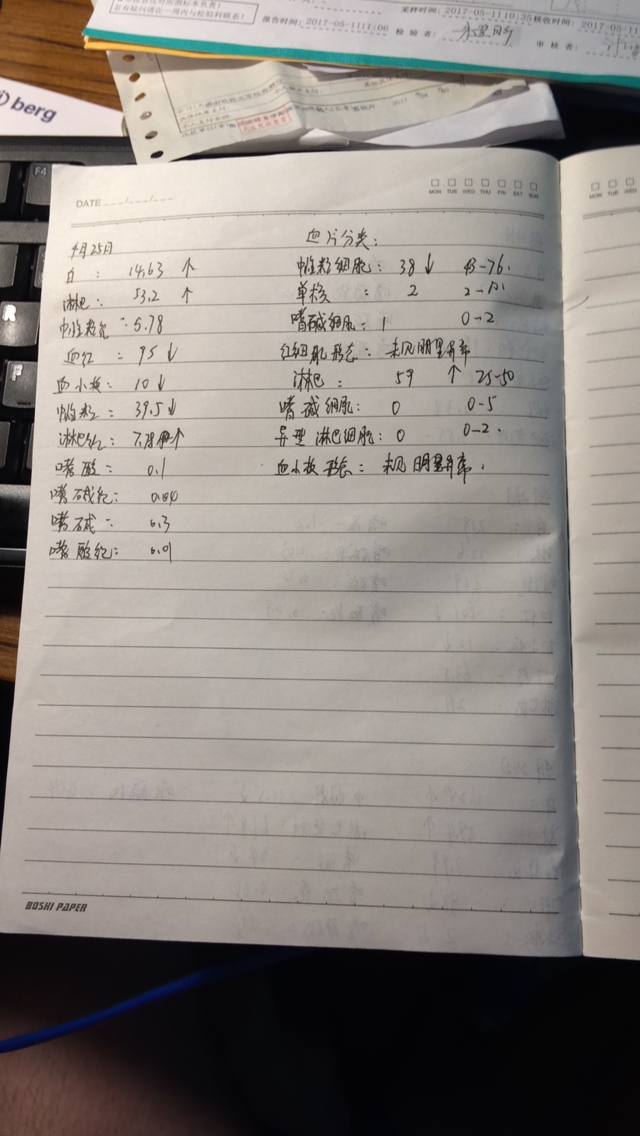 采样时间：2017-05-11 10:35 接收时间：2017-05-11
报告时间：2017-05-11 11:06 检验者： 审核者：
berg
F4
R
F
DATE
MON TUE WED THU FRI SAT SUN
MON TUE WED
4月25日
白： 14.63 ↑
淋巴： 53.2 ↑
中性粒绝：5.78
血红： 95 ↓
血小板： 10 ↓
中性粒： 39.5 ↓
淋巴绝： ↑
嗜酸： 0.1
嗜碱绝： 0.040
嗜碱： 0.3
嗜酸绝： 0.01
血片分类：
中性粒细胞： 38 ↓ 43-76.
单核： 2
嗜碱细胞： 1 0-2
红细胞形态： 未见明显异常
淋巴： 59 ↑ 25-50
嗜碱细胞： 0 0-5
异型淋巴细胞： 0 0-2.
血小板形态： 未见明显异常.
BOSHI PAPER